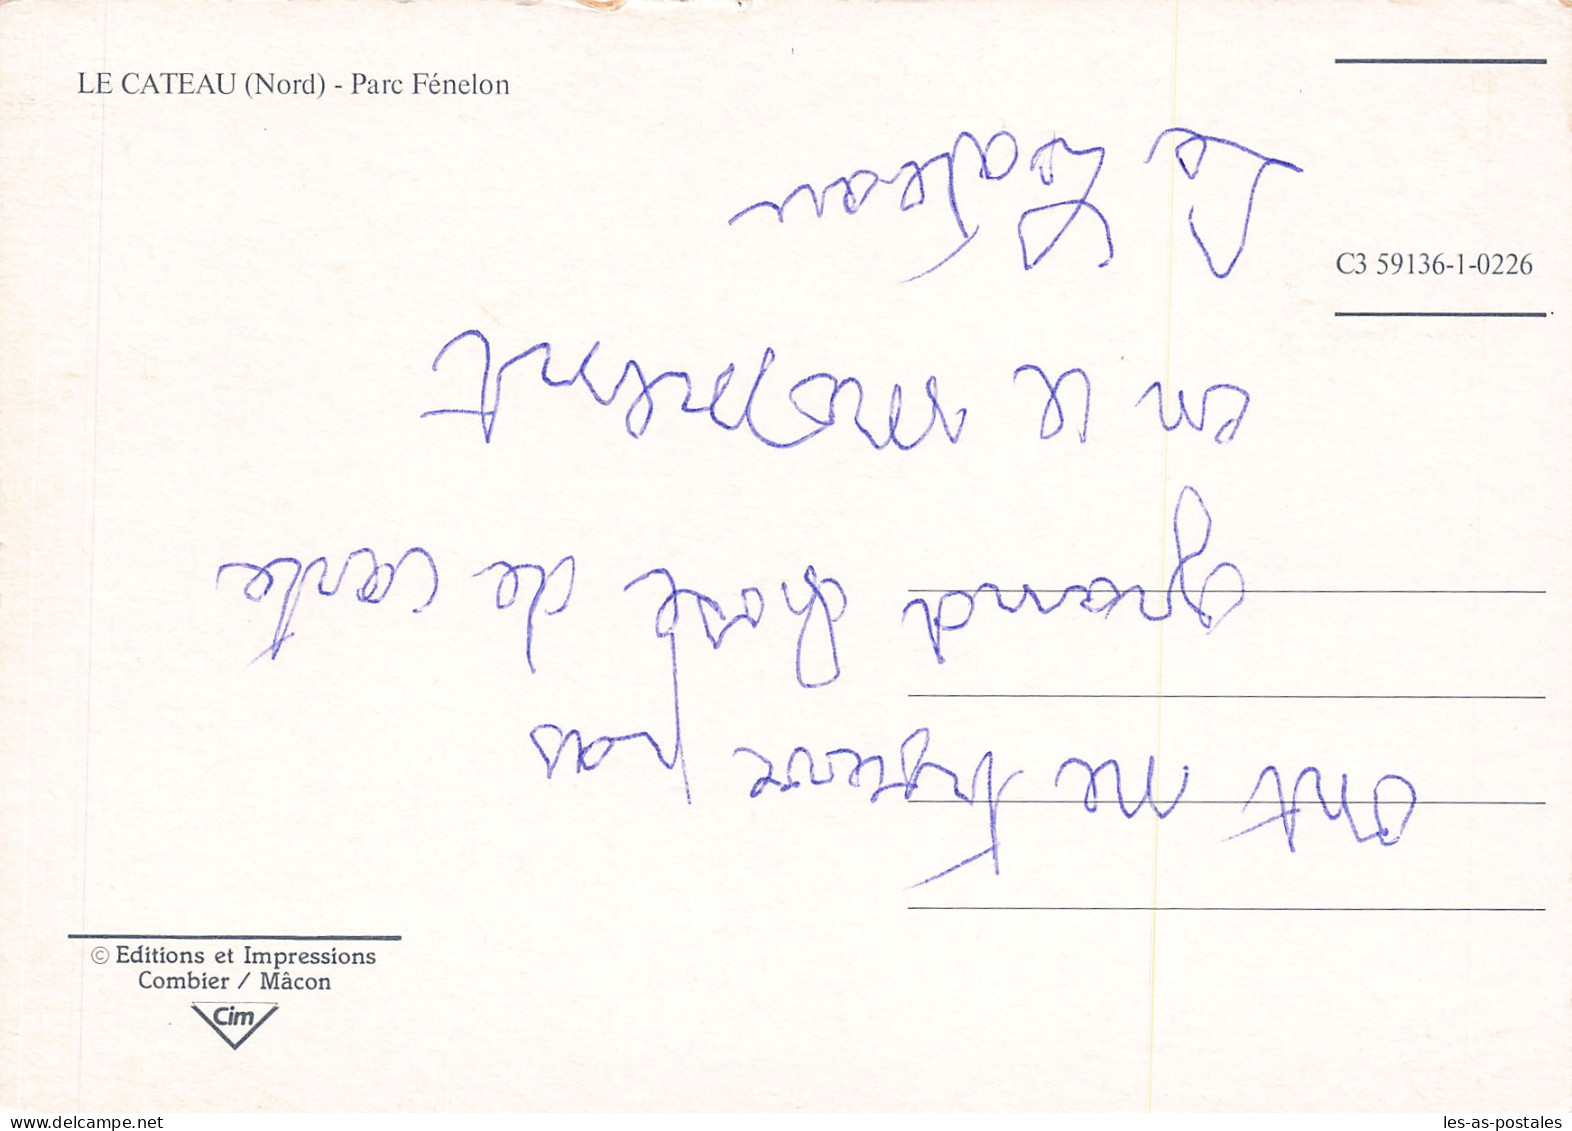 LE CATEAU (Nord) - Parc Fénelon
C3 59136-1-0226
ont ne trouve pas
grand chose de carte
en ce moment
Le Cateau
© Editions et Impressions
Combier / Mâcon
Cim
delcampe.net
les-as-postales